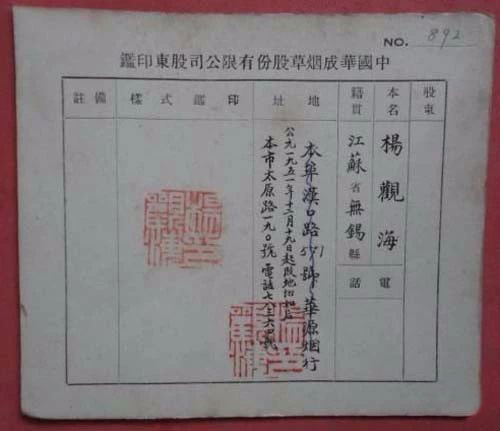 NO. 892
中國華成烟草股份有限公司股東印鑑
股東
本名
楊觀海
電話
籍貫
江蘇省無錫縣
地址
本埠漢口路571號 華源烟行
公元一九五一年十二月十九日起改地址如后
本市太原路一九〇號 電話七八三六四
印鑑式樣
備註